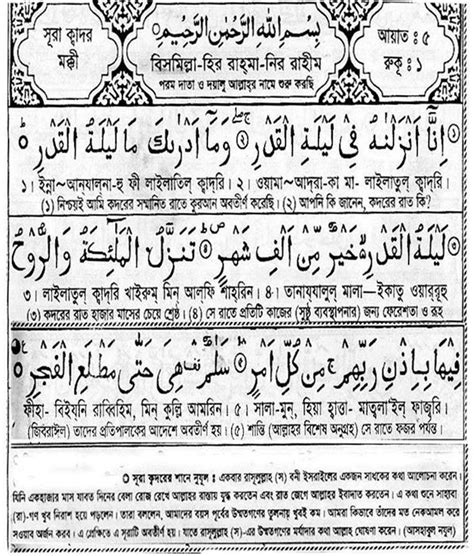 সূরা ক্বাদর
মক্কী
بِسْمِ اللّٰهِ الرَّحْمٰنِ الرَّحِيْمِ
বিসমিল্লা-হির রাহ্‌মা-নির রাহীম
পরম দাতা ও দয়ালু আল্লাহ্‌র নামে শুরু করছি
আয়াত : ৫
রুকূ : ১
اِنَّاۤ اَنْزَلْنٰهُ فِيْ لَيْلَةِ الْقَدْرِ وَمَاۤ اَدْرٰىكَ مَا لَيْلَةُ الْقَدْرِ
১। ইন্না~আনযালনা-হু ফী লাইলাতিল্ ক্বাদ্‌রি। ২। ওয়ামা~আদ্‌রা-কা মা- লাইলাতুল্ ক্বাদ্‌রি।
(১) নিশ্চয়ই আমি কদরের সম্মানিত রাতে কুরআন অবতীর্ণ করেছি। (২) আপনি কি জানেন, কদরের রাত কি?
لَيْلَةُ الْقَدْرِ خَيْرٌ مِّنْ اَلْفِ شَهْرٍ تَنَزَّلُ الْمَلٰٓئِكَةُ وَالرُّوْحُ
৩। লাইলাতুল্ ক্বাদ্‌রি খাইরুম্ মিন্ আল্‌ফি শাহ্‌রিন্। ৪। তানায্‌যালুল্ মালা—ইকাতু ওয়ার্‌রূহু
(৩) কদরের রাত হাজার মাসের চেয়ে শ্রেষ্ঠ। (৪) সে রাতে প্রতিটি কাজের (সুষ্ঠু ব্যবস্থাপনার) জন্য ফেরেশতা ও রূহ
فِيْهَا بِاِذْنِ رَبِّهِمْ مِّنْ كُلِّ اَمْرٍ سَلٰمٌ هِيَ حَتّٰى مَطْلَعِ الْفَجْرِ
ফীহা- বিইয্‌নি রাব্বিহিম্, মিন্ কুল্লি আমরিন। ৫। সালা-মুন্, হিয়া হাত্তা- মাত্বলা'ইল্ ফাজ্বরি।
(জিবরাঈল) তাদের প্রতিপালকের আদেশে অবতীর্ণ হয়। (৫) শান্তি (আল্লাহর বিশেষ অনুগ্রহ) সে রাতে ফজর পর্যন্ত।
○ সূরা ক্বদরের শানে নুযুল : একবার রাসূলুল্লাহ (স) বনী ইসরাইলের একজন সাধকের কথা আলোচনা করেন।
যিনি একহাজার মাস যাবত দিনের বেলা রোজ রেখে আল্লাহর রাস্তায় যুদ্ধ করতেন এবং রাত জেগে আল্লাহর ইবাদাত করতেন। এ কথা শুনে সাহাবা
(রা)-গণ খুব নিরাশ হয়ে পড়লেন। তারা বললেন, আমাদের বয়স পূর্বের উম্মতগণের তুলনায় খুবই কম। আমরা কিভাবে তাঁদের মত নেকআমল করে
সওয়াব অর্জন করব। এ প্রেক্ষিতে এ সূরাটি অবতীর্ণ হয়। যাতে রাসূলুল্লাহ (স)-এর উম্মতগণের মর্যাদার কথা আল্লাহ ঘোষণা করেন। (আসহাবুল নযুল)